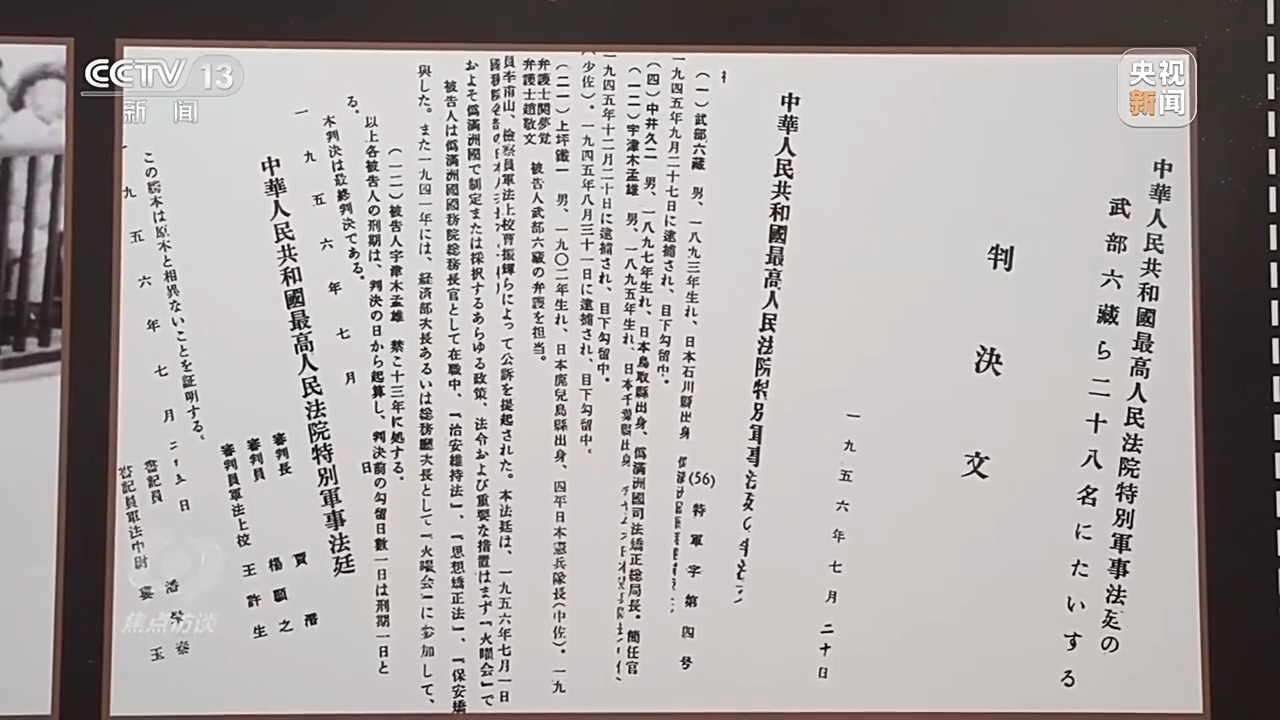 CCTV 13
新闻
央视
新闻
中華人民共和國最高人民法院特別軍事法廷の
武部六藏ら二十八名にたいする
判決文
一九五六年七月二十日
中華人民共和國最高人民法院特別軍事法廷の
(56)特軍字第四号
(一)武部六藏 男、一八九三年生れ、日本石川縣出身
一九四五年九月二十七日に逮捕され、目下勾留中。
(四)中井久二 男、一八九七年生れ、日本鳥取縣出身、偽滿洲國司法矯正総局長。簡任官
(一二)宇津木孟雄 男、一八九五年生れ、日本千葉縣出身
一九四五年十二月二十日に逮捕され、目下勾留中。
(少佐)。一九四五年八月三十一日に逮捕され、目下勾留中。
(二一)上坪鐵一 男、一九〇二年生れ、日本鹿兒島縣出身、四平日本憲兵隊長(中佐)。一九
弁護士関夢覚
弁護士趙敬文 被告人武部六藏の弁護を担当。
員李甫山、檢察員軍法上校曹振輝らによって公訴を提起された。本法廷は、一九五六年七月一日
およそ偽滿洲國で制定または採択するあらゆる政策、法令および重要な措置はまず『火曜会』で
被告人は偽滿洲國國務院総務長官として在職中、『治安維持法』、『思想矯正法』、『保安矯
與した。また一九四一年には、経済部大長あるいは総務廳大長として『火曜会』に参加して、
(一二)被告人宇津木孟雄 禁こ十三年に処する。
以上各被告人の刑期は、判決の日から起算し、判決前の勾留日數一日は刑期一日と
る。
本判決は最終判決である。
一九五六年七月 日
中華人民共和國最高人民法院特別軍事法廷
審判長 賈潛
審判員 楊顕之
審判員軍法上校 王許生
この謄本は原本と相異ないことを証明する。
一九五六年七月二十五日
書記員
書記員軍法中尉
焦点访谈